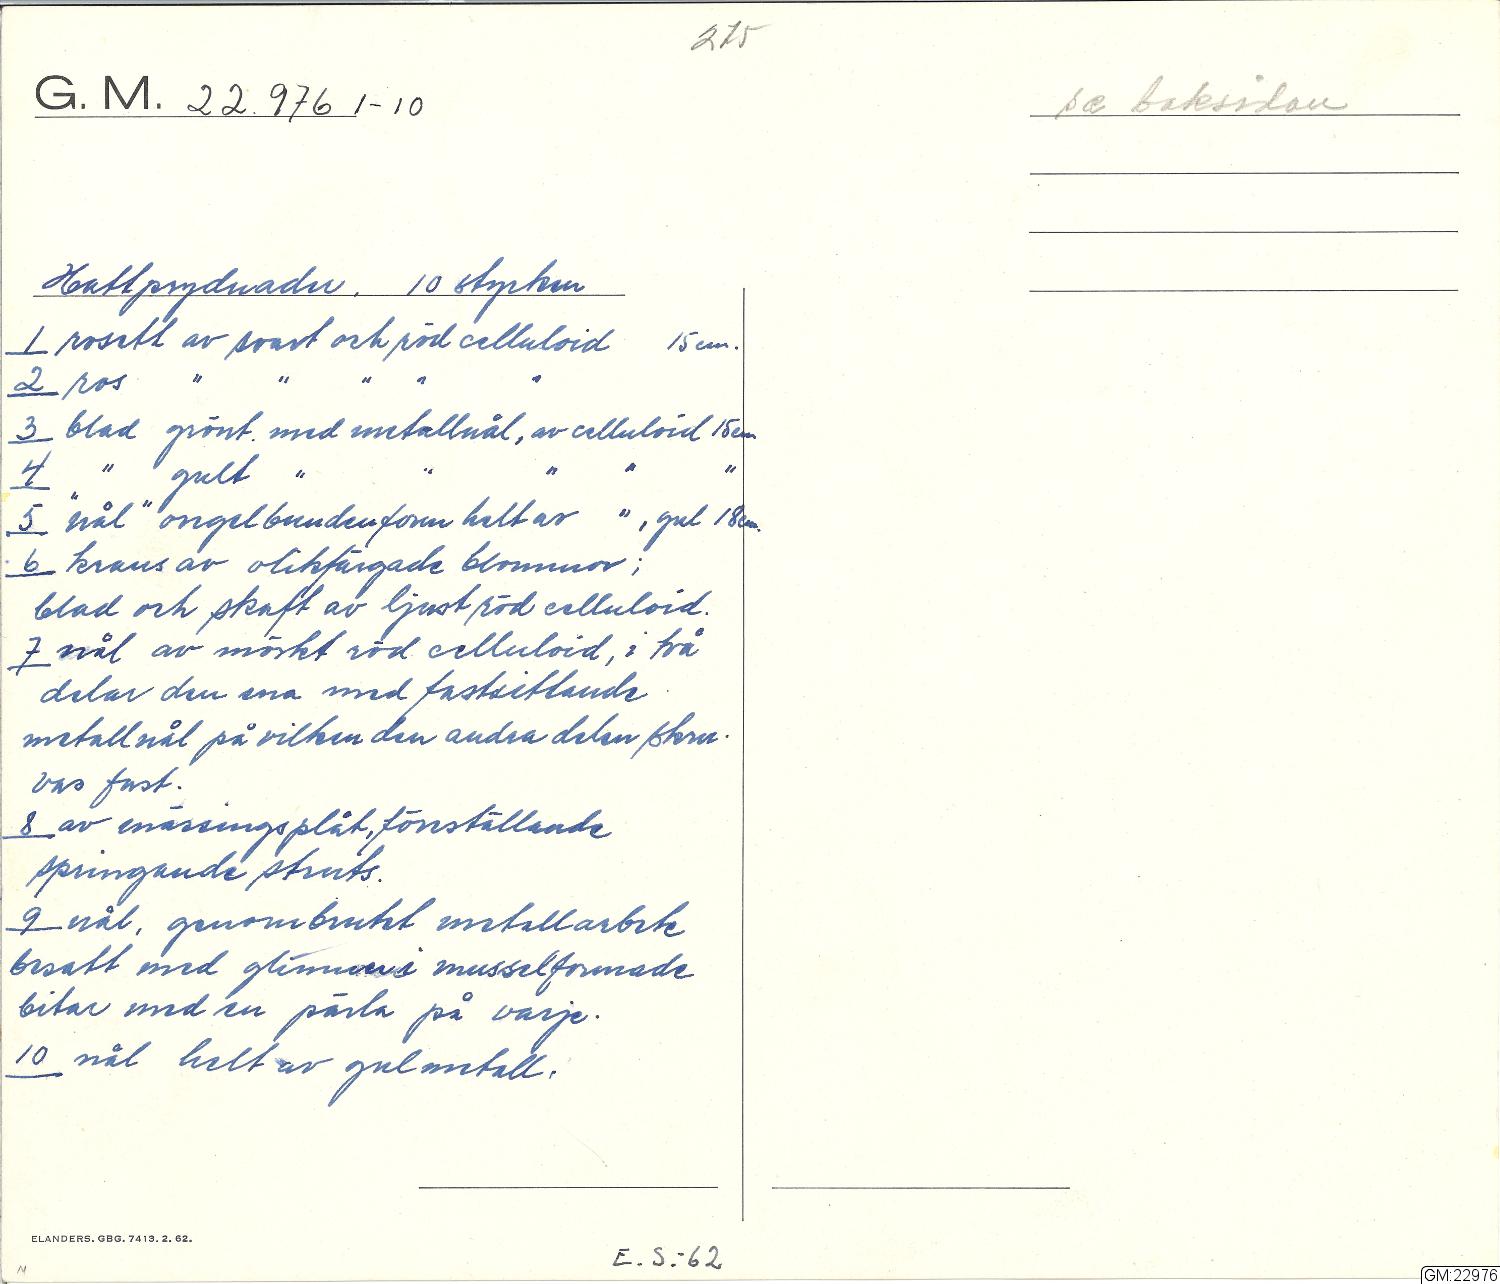 275
G. M. 22.976 1-10
se baksidan
Hattprydnader. 10 stycken
1 rosett av svart och röd celluloid 15 cm.
2 ros " " " " "
3 blad grönt. med metallnål, av celluloid 15 cm
4 " gult " " " " "
5 "nål" orgelbunden form helt av ", gul 18 cm.
6 krans av olikfärgade blommor;
blad och skaft av ljust röd celluloid.
7 nål av mörkt röd celluloid, i två
delar den ena med fastsittande
metallnål på vilken den andra delen skru-
vas fast.
8 av mässingsplåt, föreställande
springande struts.
9 nål, genombrutet metallarbete
besatt med glimmer i musselformade
bitar med en pärla på varje.
10 nål helt av gul metall.
ELANDERS. GBG. 7413. 2. 62.
E. S.-62
GM:22976